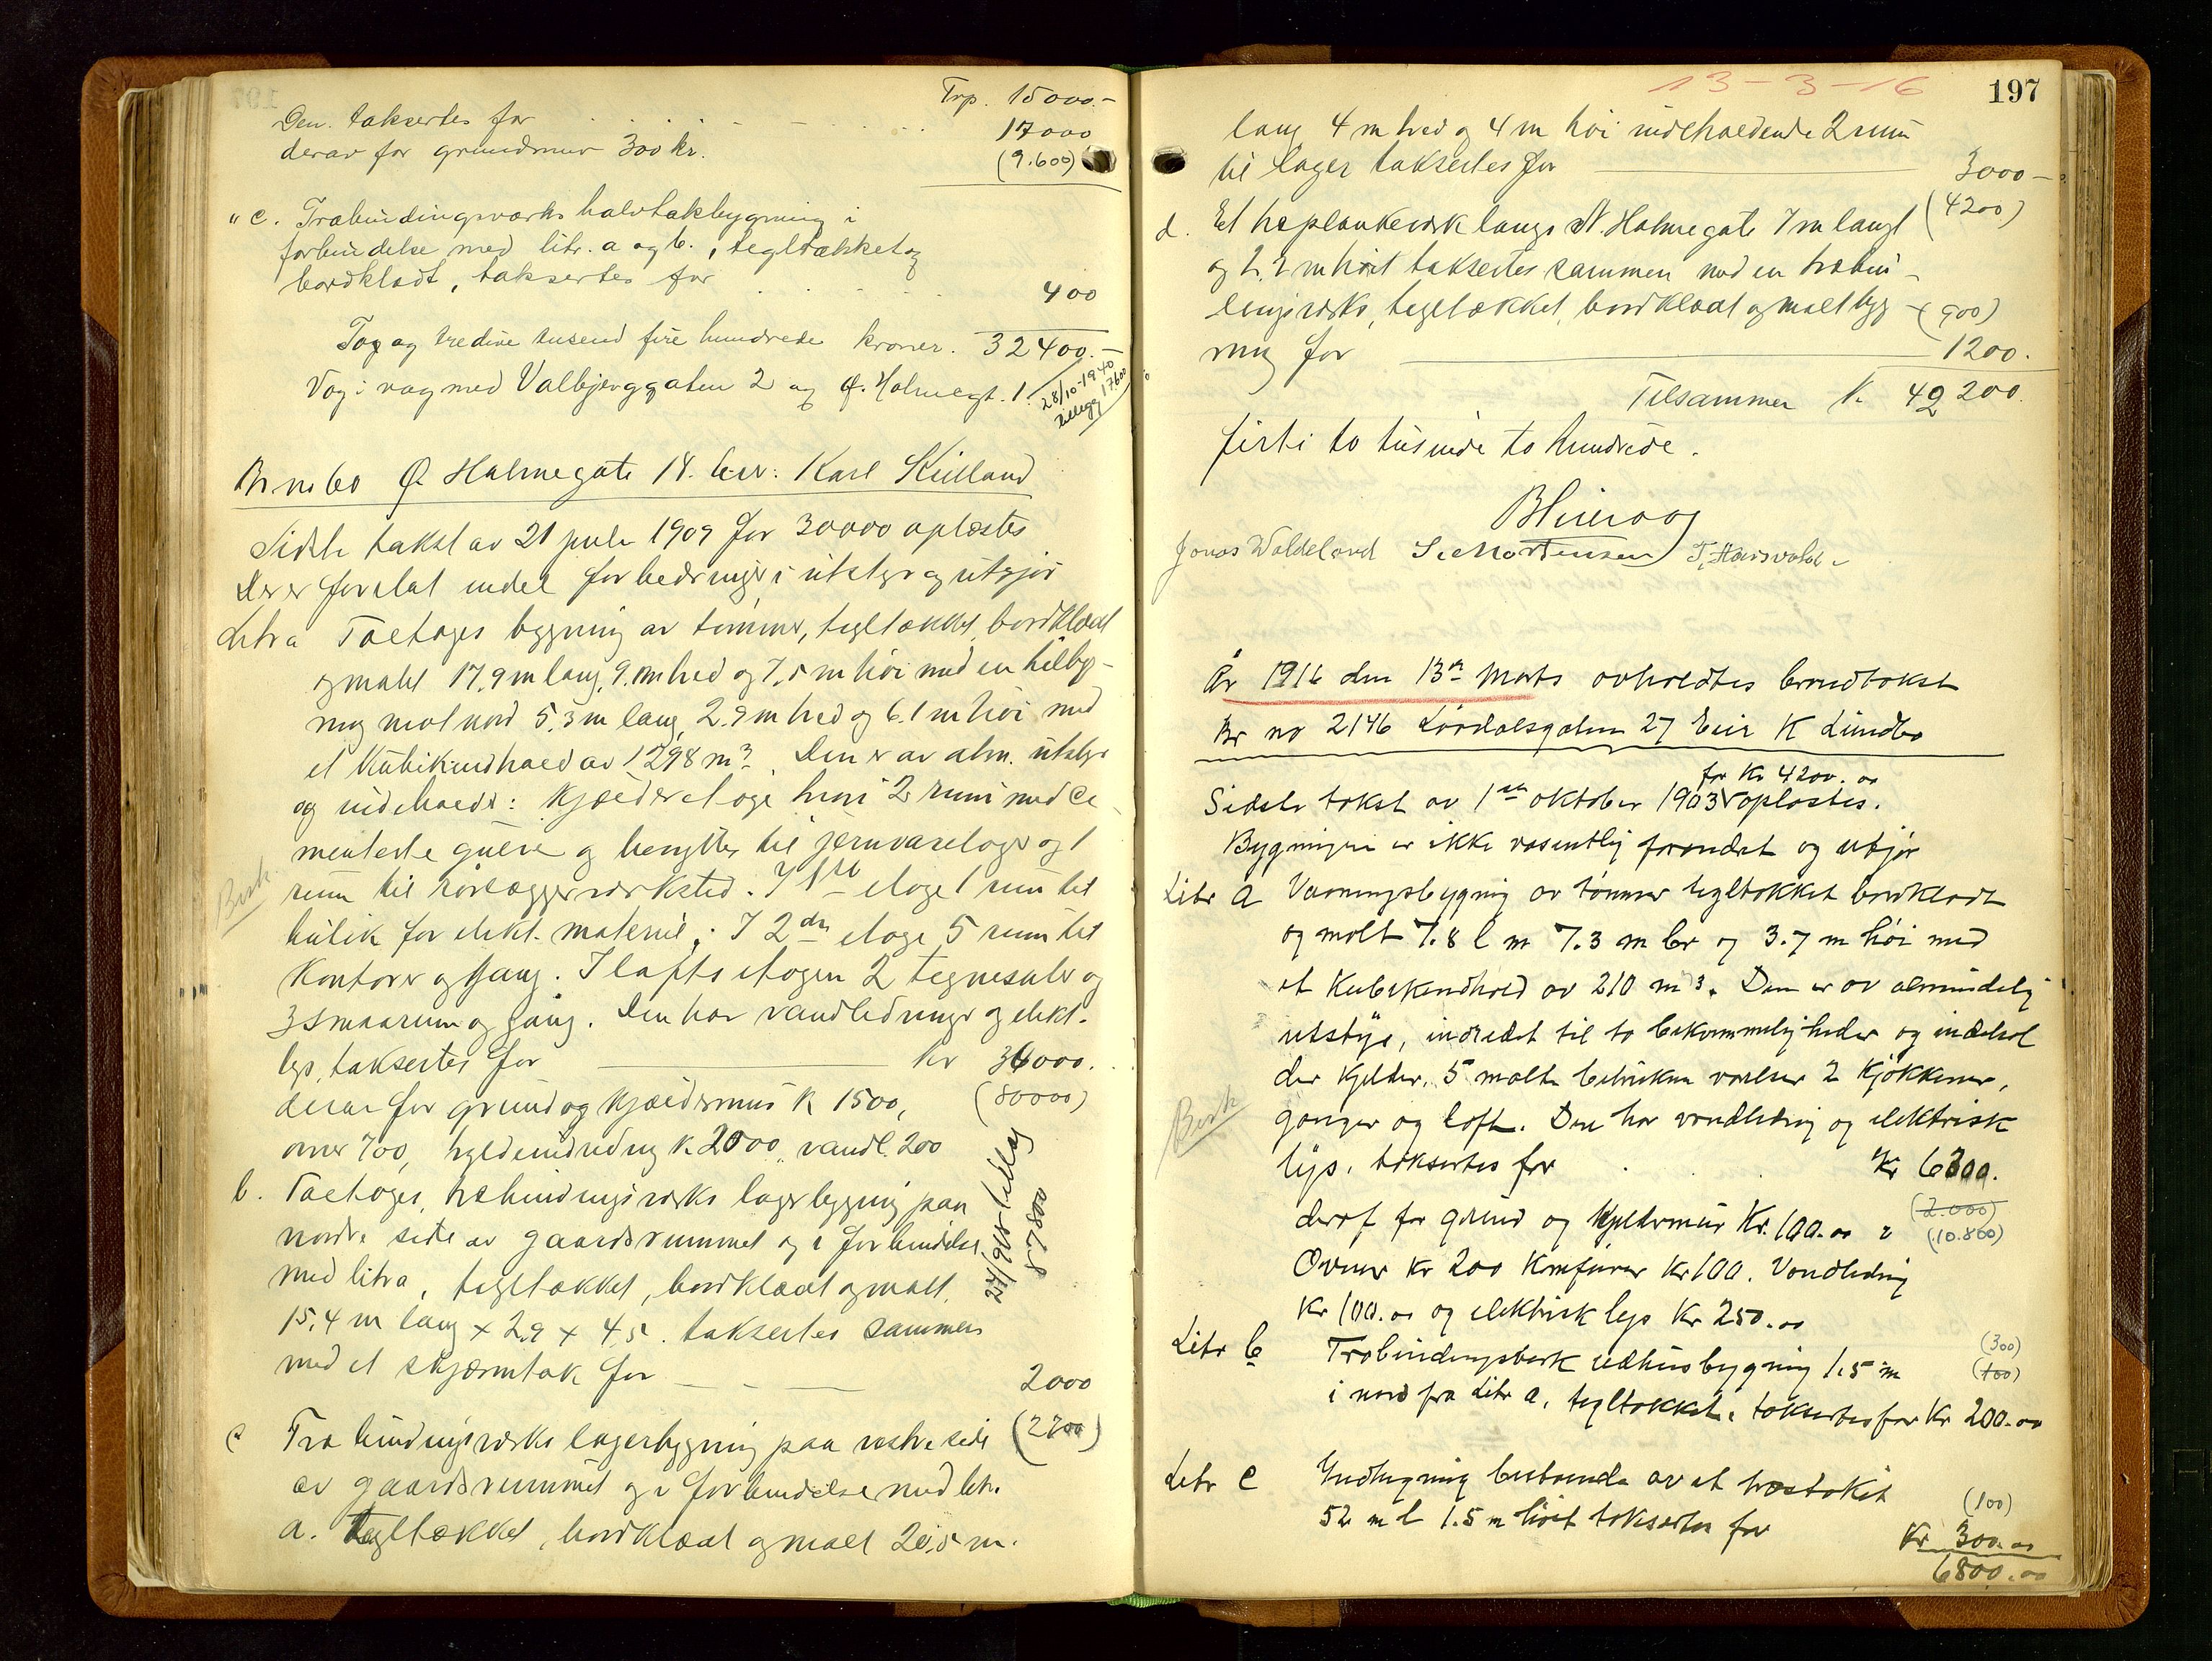 Trp. 15000.-
Den taksertes for 17000
derav for grundmur 300 kr. (9.600)
" c. Træbindingsværks halvtakbygning i
forbindelse med litr. a og b., tegltækket og
bordklædt, taksertes for 400
To og tredive tusend fire hundrede kroner. 32400.-
Væg i væg med Valbjerggaten 2 og Ø. Holmegt. 1.
28/10-1940
tillegg 17600
Br no 60 Ø Holmegate 14. Eier: Karl Kielland
Sidste takst av 21 juli 1909 for 30000 oplæstes
Der er foretat endel forbedringer i utstyr og utgjør
Litra Toetages bygning av tømmer, tegltækket, bordklædt
og malt 17,9 m lang, 9. m bred og 7,5 m høi med en tilbyg-
ning mot nord 5,3 m lang, 2.9 m bred og 6.1 m høi med
et Kubikindhold av 1298 m3. Den er av alm. utstyr
og indeholder: Kjælderetage hvori 2 rum med ce-
menterte gulve og benyttes til jernvarelager og 1
rum til rørlæggerværksted. I 1ste etage 1 rum til
butik for elekt. materiel; I 2den etage 5 rum til
Kontorer og Gang. I loftsetagen 2 tegnesale og
3 smaarum og gang. Den har vandledninger og elekt.
lys, taksertes for kr 36000.
derav for grund og kjældermur k 1500, (80000)
ovner 700, hyldeindredning k. 2000, vandl. 200
b. Toetages, træbindingsværks lagerbygning paa
nordre side av gaardsrummet og i forbindelse
med litra, tegltækket, bordklædt og malt,
15,4 m lang x 2,9 x 4,5. taksertes sammen
med et skjærmtak for 2000
c Træbindingsværks lagerbygning paa vestre side (2700)
av gaardsrummet og i forbindelse med litr.
a. Tegltækket, bordklædt og malt 20,5 m.
Besk
13-3-16
197
lang 4 m bred og 4 m høi indeholdende 2 rum
til lager taksertes for 3000-
d. Et træplankeværk langs N. Holmegate 7 m langt (4200)
og 2,2 m høit taksertes sammen med en træbin-
dingsværks, tegltækket, bordklædt og malt byg- (900)
ning for 1200.
Tilsammen k. 42 200.
firti to tusinde to hundrede.
Jonas Waldeland S. Mortensen
År 1916 den 13de Marts avholdtes brandtakst
Br no 2146 Lårdalsgaten 27 Eier K Lundbo
for Kr 4200.00
Sidste takst av 1ste oktober 1903 oplæstes.
Bygningen er ikke væsentlig forandret og utgjør
Litr a Vaaningsbygning av tømmer tegltækket bordklædt
og malt 7.8 l m 7.3 m br og 3.7 m høi med
et Kubikindhold av 210 m3. Den er av almindelig
utstyr, indredet til to bekvemmeligheder og indehol
der kjelder, 5 malte betrukne værelser 2 kjøkkener,
ganger og loft. Den har vandledning og elektrisk
lys, taksertes for Kr 6300.
deraf for grund og kjeldermur Kr. 100.00 (2.000)
(10.800)
Ovner Kr 200 Komfurer Kr 100. Vandledning
Kr 100.00 og elektrisk lys Kr 250.00
Besk
Litr b Træbindingsverk udhusbygning 1.5 m (300)
(100)
i nord fra Litr a, tegltækket, taksertes for Kr 200.00
Litr c Indhegning bestaaende av et træstakit
52 m l 1.5 m høit taksertes for (100)
Kr 300.00
6800.00